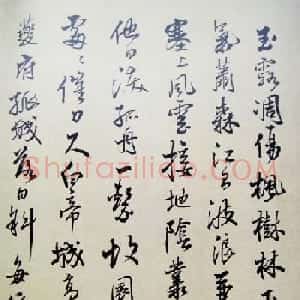 玉露凋傷楓樹林巫
氣蕭森江間波浪兼
塞上風雲接地陰叢
他日淚孤舟一繫故園
處〻催刀尺白帝城高
夔府孤城落日斜每依
Shufaziliao.com